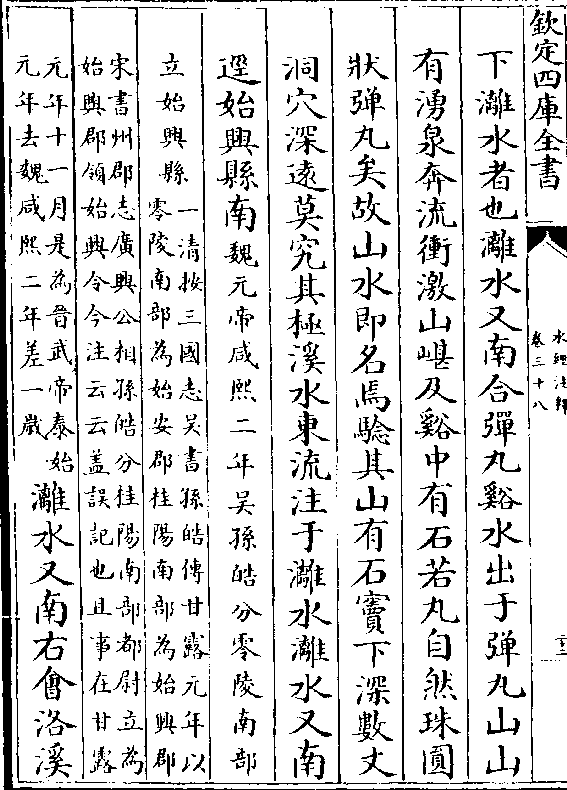 欽定四庫全書
水經注釋
卷三十八
下灕水者也灕水又南合彈丸谿水出于弹丸山山
有湧泉奔流衝激山嵁及谿中有石若丸自然珠圓
狀弹丸矣故山水即名焉驗其山有石竇下深數丈
洞穴深遠莫究其極溪水東流注于灕水灕水又南
逕始興縣南魏元帝咸熙二年吳孫皓分零陵南部
立始興縣
一清按三國志吳書孫皓傳甘露元年以
零陵南部為始安郡桂陽南部為始興郡
宋書州郡志廣興公相孫皓分桂陽南部都尉立為
始興郡領始興令今注云云盖誤記也且事在甘露
元年十一月是為晉武帝泰始
元年去魏咸熙二年差一歲
灕水又南右會洛溪